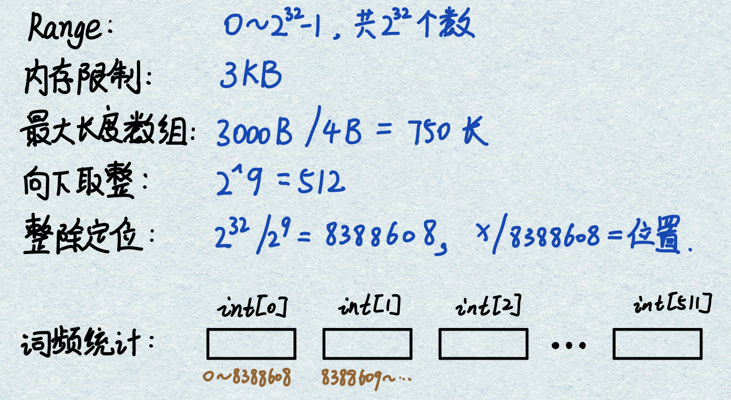 Range: 0~2^32-1, 共2^32个数
内存限制: 3KB
最大长度数组: 3000B /4B = 750 长
向下取整: 2^9 = 512
整除定位: 2^32/2^9 = 8388608, x/8388608 = 位置.
int[0] int[1] int[2] int[511]
词频统计: ...
0~8388608 8388609~...